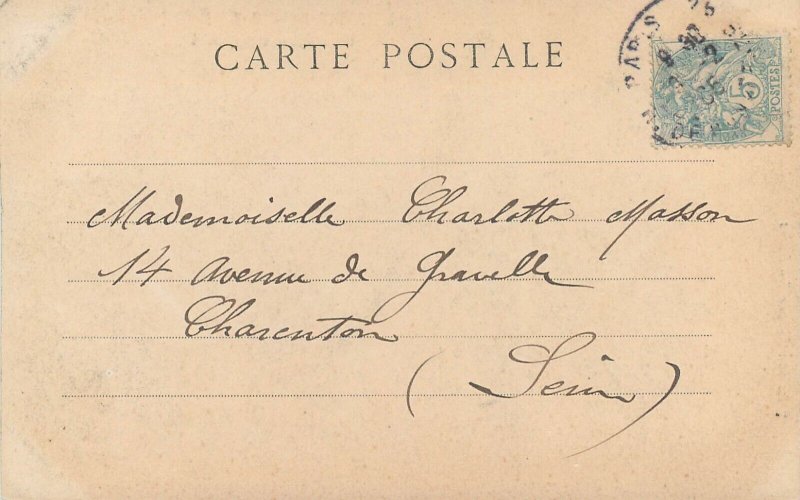 CARTE POSTALE
PARIS
5
POSTES
Mademoiselle Charlotte Masson
14 Avenue de Gravelle
Charenton
(Seine)